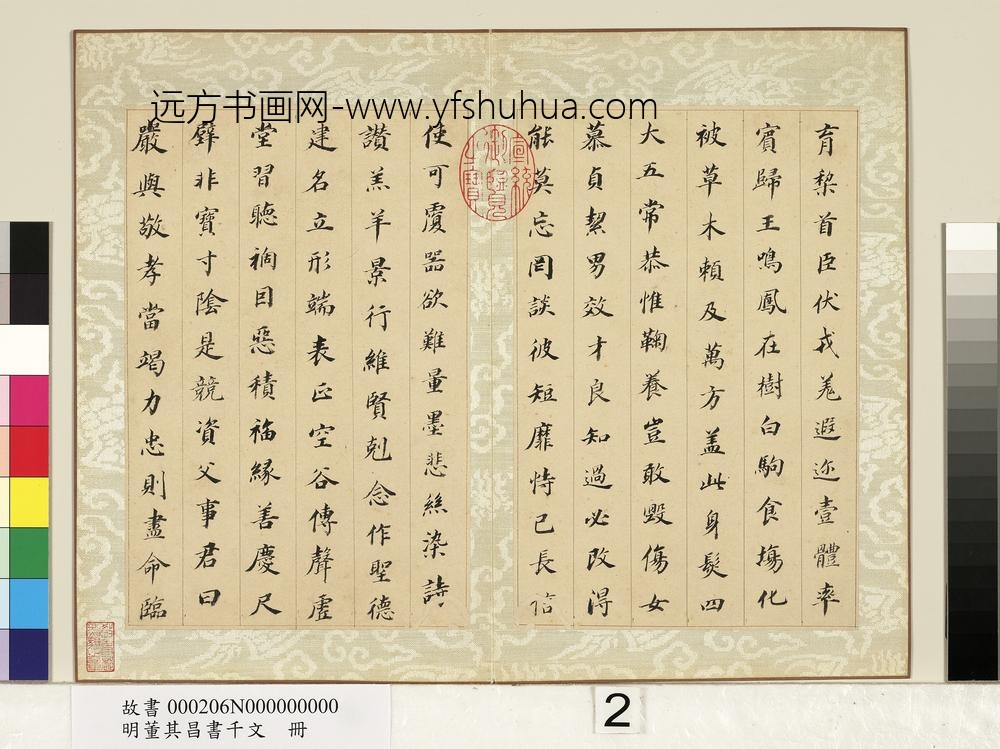 远方书画网-www.yfshuhua.com
育黎首臣伏戎羌遐迩壹體率
賓歸王鳴鳳在樹白駒食場化
被草木賴及萬方盖此身髮四
大五常恭惟鞠養豈敢毀傷女
慕貞絜男效才良知過必改得
能莫忘罔談彼短靡恃己長信
使可覆器欲難量墨悲絲染詩
讚羔羊景行維賢剋念作聖德
建名立形端表正空谷傳聲虛
堂習聽禍因惡積福緣善慶尺
璧非寶寸陰是競資父事君曰
嚴與敬孝當竭力忠則盡命臨
宣統御覽之寶
故書 000206N000000000
明董其昌書千文 冊
2